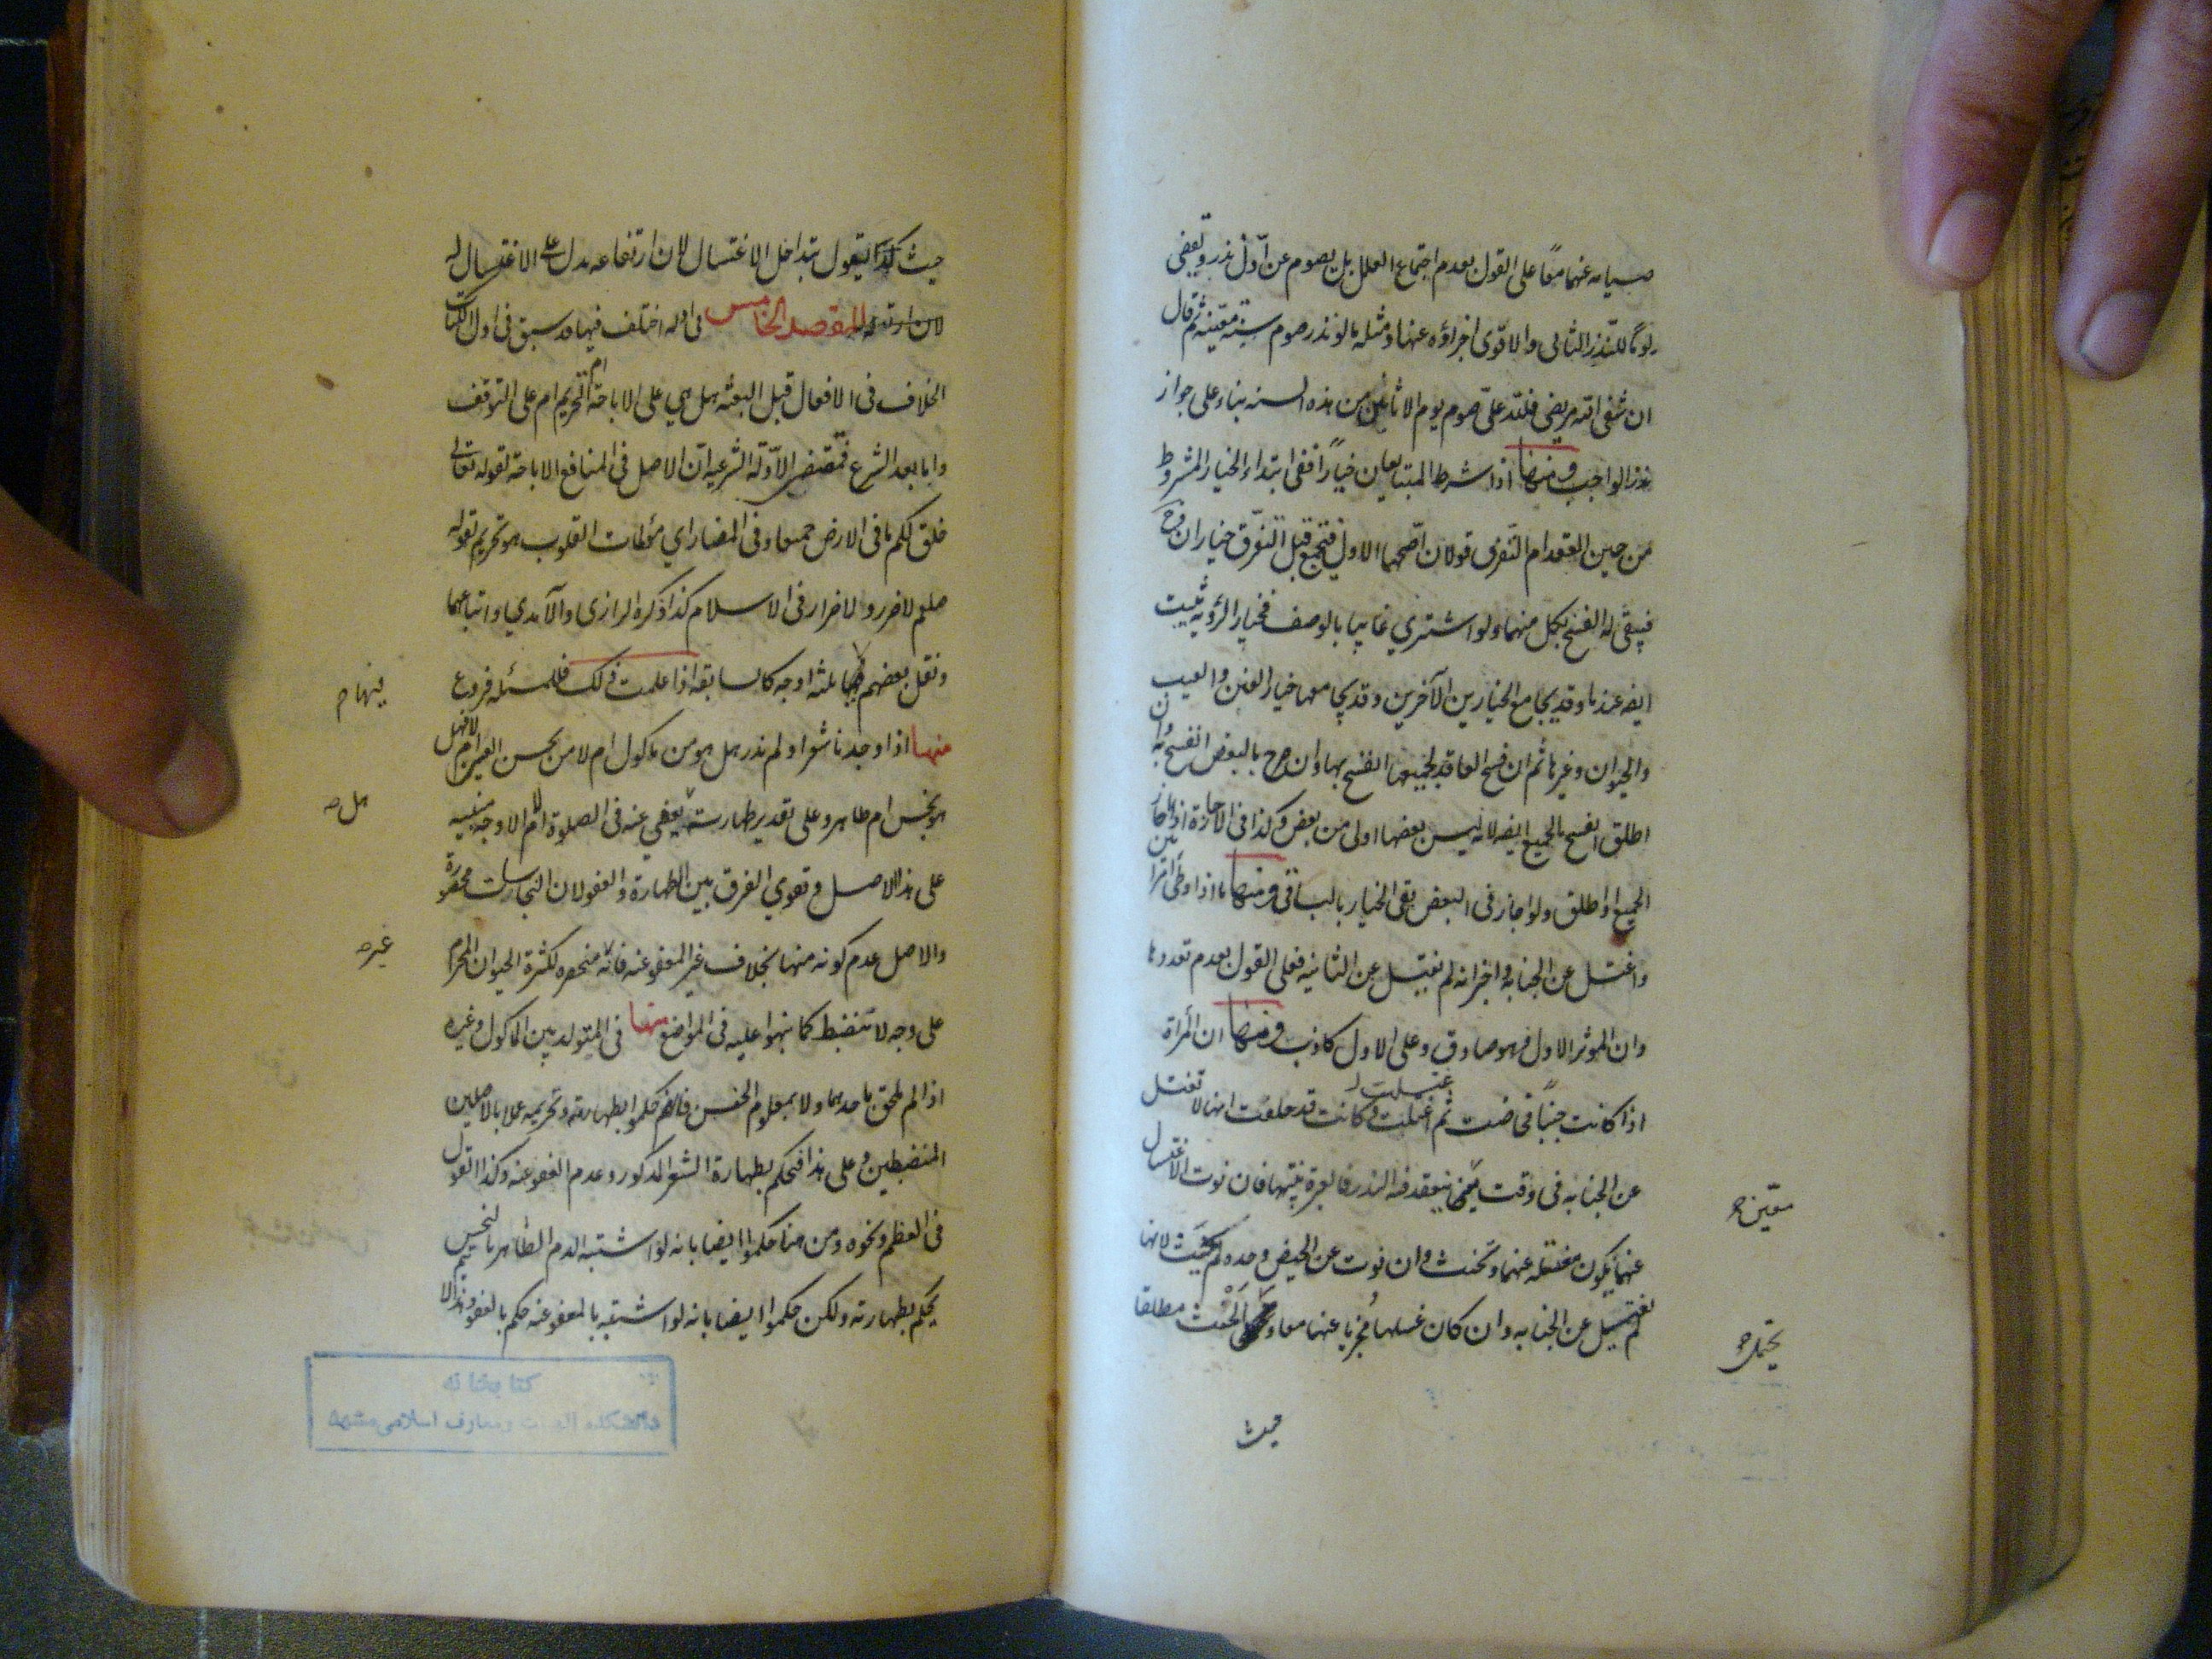 صيامه عنهما معًا على القول بعدم اجتماع العلل بل يصوم عن اوّل نذر ويقضى
يومًا للنذر الثانى والاقوى اجزاؤه عنهما ومثله ما لو نذر صوم سنة معيّنة ثم قال
ان شفى الله مريضى فلله علىّ صوم يوم الاثانين من هذه السنه بناء على جواز
نذر الواجب ومنها اذا شرط المتبايعان خيارًا ففى ابتداء الخيار المشروط
من حين العقد ام التفرق قولان اصّحهما الاول فتجمع قبل التفرّق خياران وح
فيبقى له الفسخ بكل منهما ولو اشترى غايبا بالوصف فخيار الرؤية يثبت
ايضه عندنا وقد يجامع الخيارين الآخرين وقد يجامعها خيار الغبن والعيب
والحيوان وغيرها ثم ان فسخ العاقد بجميعها انفسخ بها وان صرح بالبعض انفسخ به وان
اطلق انفسخ بالجميع ايضه لانه ليس بعضها اولى من بعض وكذا فى الاجازة اذا اجاز
الجميع او اطلق ولو اجاز فى البعض بقى الخيار بالباقى ومنها ما اذا وطى امراتين
واغتسل عن الجنابه واخبر انه لم يغتسل عن الثانيه فعلى القول بعدم تعددها
وان الموثر الاول فهو صادق وعلى الاول كاذب ومنها ان المرأة
اذا كانت جنبًا فحاضت ثم اغتسلت وكانت قد حلفت انها لا تغتسل
عن الجنابه فى وقت ينعقد فيه النذر فالعبرة بنيتها فان نوت الاغتسال
عنهما يكون مغتسله عنهما وتحنث وان نوت عن الحيض وحده لم تحنث لانها
لم تغتسل عن الجنابه وان كان غسلها مجزيا عنهما معا و الحنث مطلقا
معيّن
يحتمل
حيث
حيث يقول بتداخل الاغتسال لان ارتفاعه يدل على الاغتسال له
المقصد الخامس فى ادله اختلف فيها قد سبق فى اول الكتاب
الخلاف فى الافعال قبل البعثه هل هي على الاباحة ام التحريم ام على التوقف
واما بعد الشرع فمقتضى الادّلة الشرعيه ان الاصل فى المنافع الاباحة لقوله تعالى
خلق لكم ما فى الارض جميعا وفى المضار اي مؤلمات القلوب هو تحريم لقوله
صلعم لا ضرر ولا ضرار فى الاسلام كذا ذكره الرازى والآمدي واتباعهما
ونقل بعضهم ثلثة اوجه كالسابقه اذا علمت ذلك فللمسئله فروع
منها اذا وجدنا شعرا ولم ندر هل هو من ماكول ام لا من نجس العين ام لا فهل
هو نجس ام طاهر وعلى تقدير طهارته يعفى عنه فى الصلوة ام لا الاوجه مبنيه
على هذا الاصل وتقوي الفرق بين الطهارة والعفو لان النجاسات محصورة
والاصل عدم كونه منها بخلاف غير المعفو عنه فانه منحصره لكثرة الحيوان المحرم
على وجه لا تنضبط كما نبهوا عليه فى المواضع منها فى المتولد بين الماكول وغيره
اذا لم يلحق باحدهما ولا بمعلوم الجنس فانهم حكموا بطهارته وتحريمه عملا بالاصلين
المنضبطين وعلى هذا فنحكم بطهارة الشعر المذكور وعدم العفو عنه وكذا القول
فى العظم ونحوه ومن هنا حكموا ايضا بانه لو اشتبه الدم الطاهر بالنجس
يحكم بطهارته ولكن حكموا ايضا بانه لو اشتبه بالمعفو عنه حكم بالعفو
فيها
هل
غير
كتابخانه
دانشكده الهيات ومعارف اسلامى مشهد